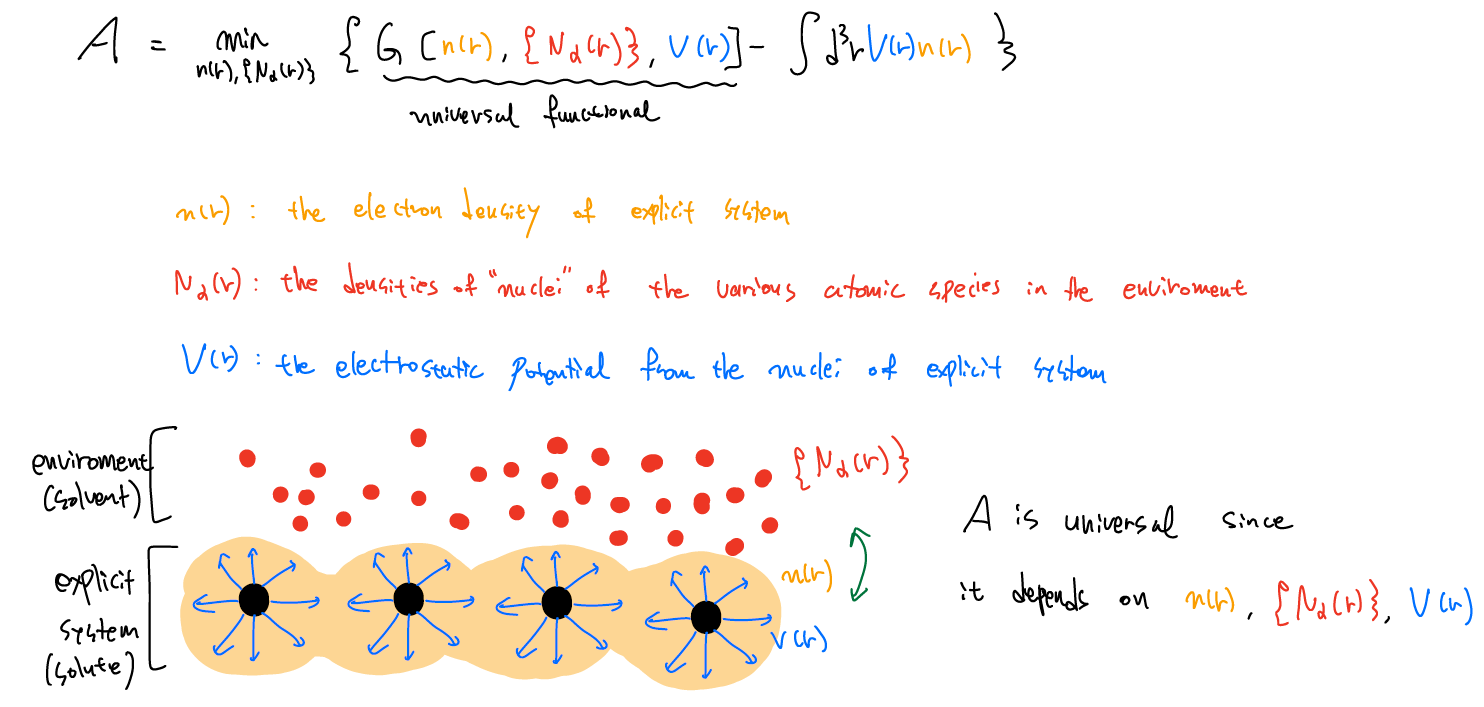 A = min n(r),{N_α(r)} { G [n(r), {N_α(r)}, V(r)] - ∫d³r V(r)n(r) }
universal functional
n(r) : the electron density of explicit system
N_α(r) : the densities of "nuclei" of the various atomic species in the enviroment
V(r) : the electrostatic potential from the nuclei of explicit system
enviroment
(solvent)
{N_α(r)}
A is universal since
it depends on n(r), {N_α(r)}, V(r)
explicit
system
(solute)
n(r)
V(r)